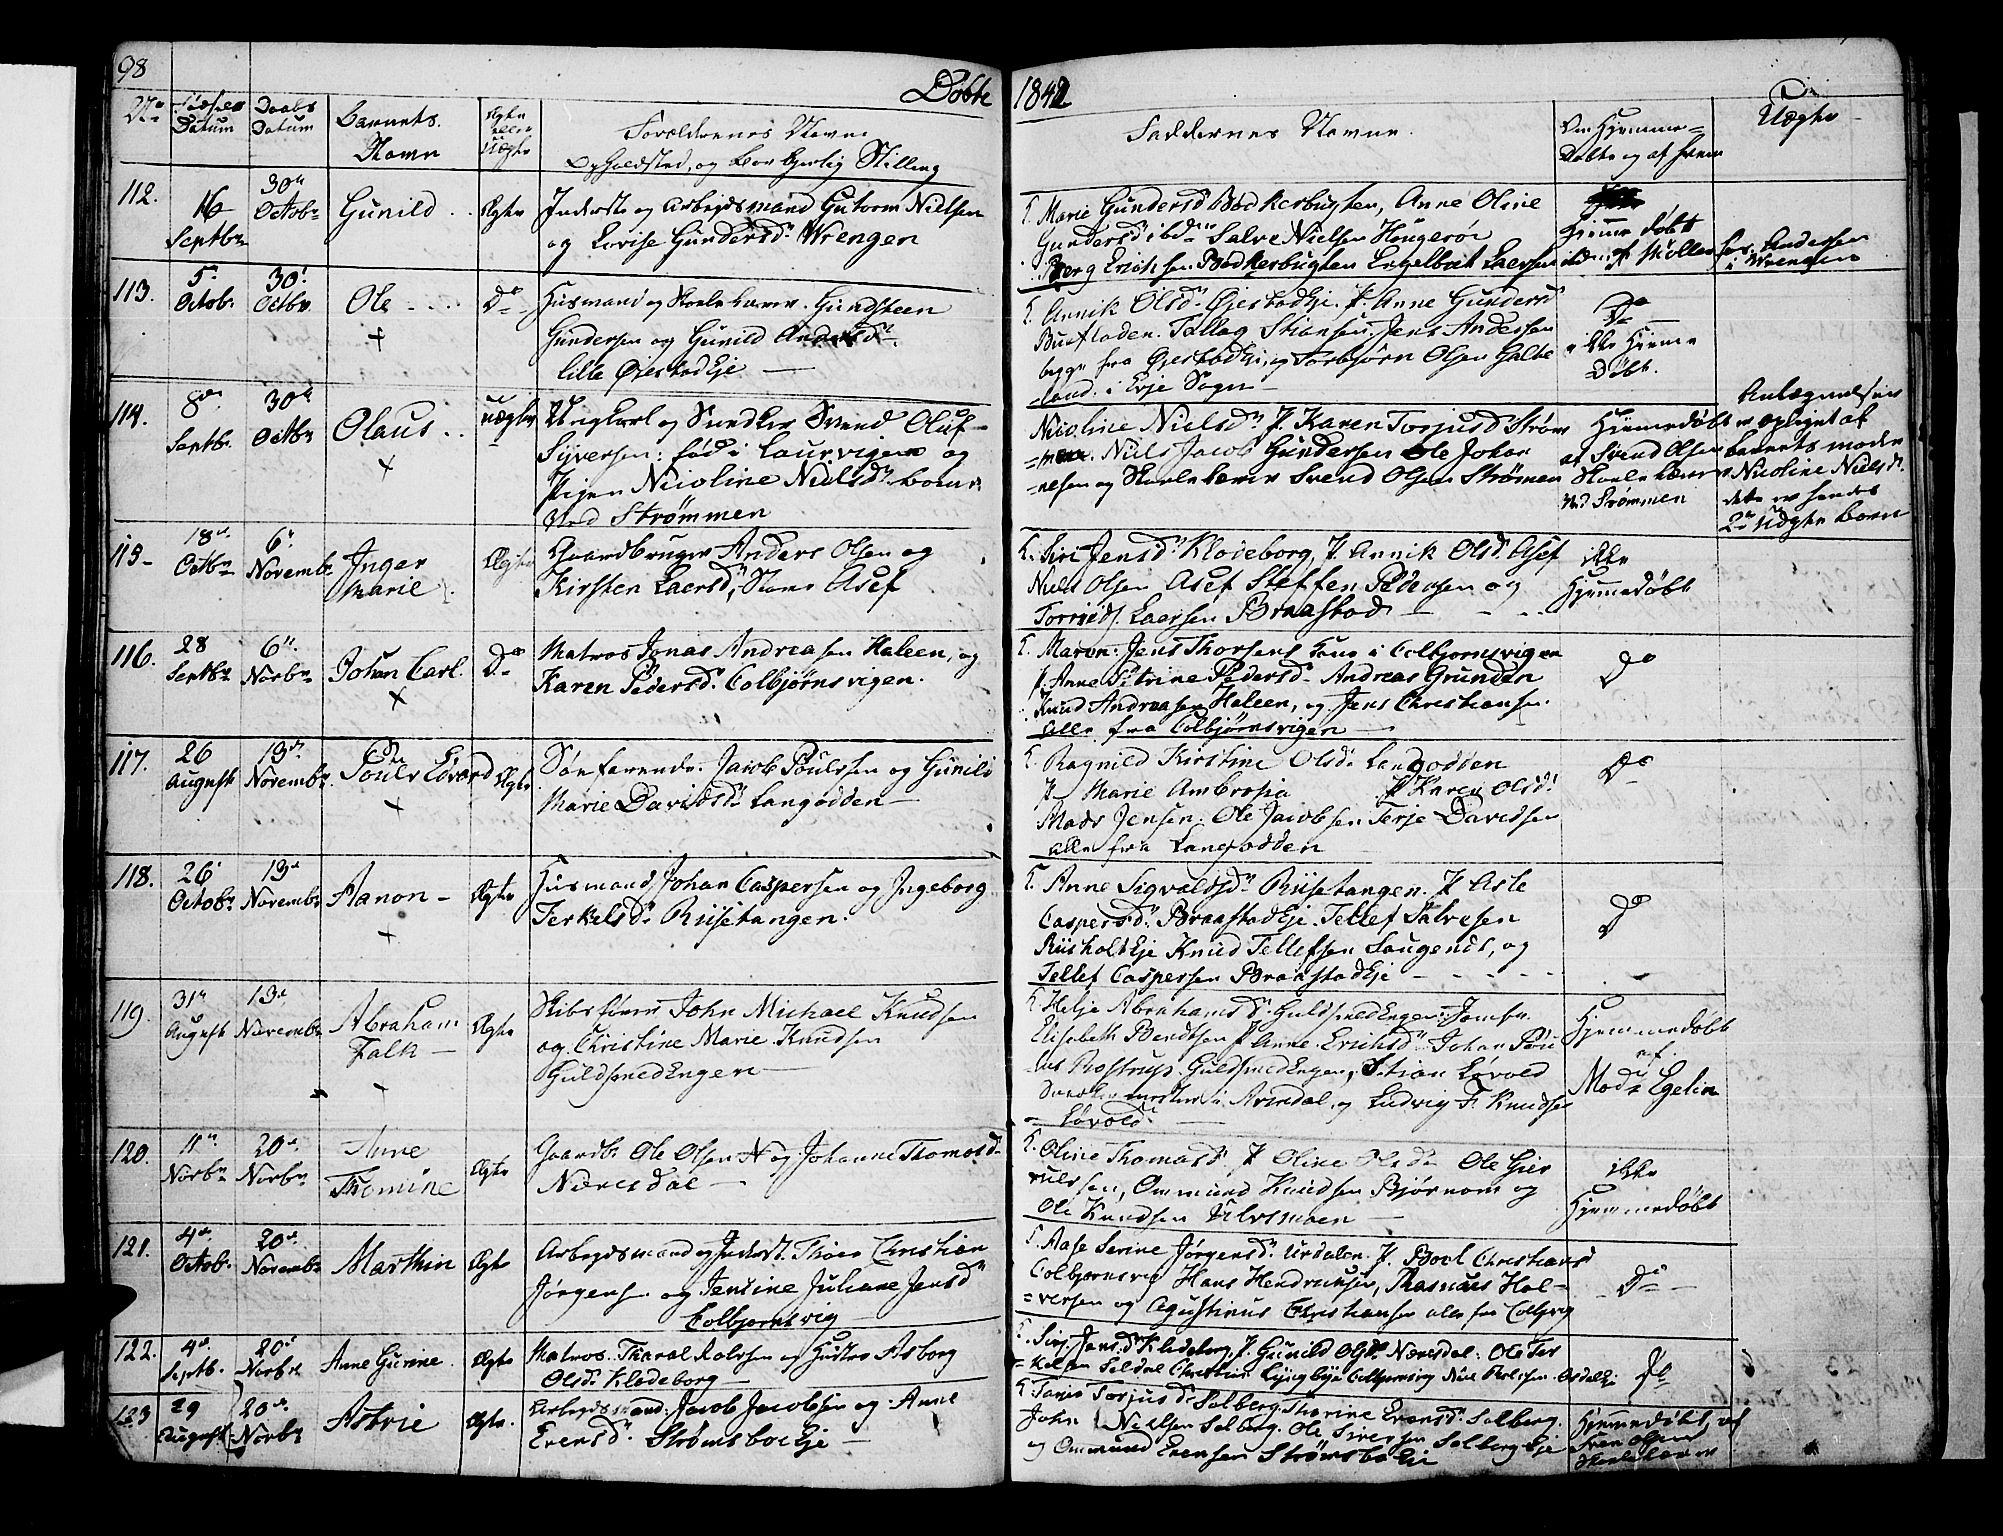 98
Døbte
1842
No
Fødsels Datum
Daabs Datum
Barnets Navn
Ægte eller Uægte
Forældrenes Navne
Opholdsted, og borgerlig Stilling
Faddernes Navne
Om Hjemme=
Døbte og af hvem
Uægte
112.
16 Septbr
30te Octobr
Gunild
Ægte
Inderste og Arbejdsmand Gutorm Nielsen
og Lovise Gundersd. Wrengen
Marie Gundersd Bødkerbugten, Anne Oline
Gundersd ibd. Salve Nielsen Hougerøe
Berg Erichsen Bødkerbugten Engelbret Laersen
Hjemmedøbt
af Møller Andersen
i Wrengen
113.
5. Octobr
30. Octbr
Ole
Do
Husmand og Skolelærer Gundsteen
Gundersen og Gunild Andersd.
lille Øiestad Eje
Annik Olsd. Øiestad Eje. P. Anne Gundersd
Buefladen. Tellag Stiansen, Jens Andersen
begge fra Øiestad Eje, og Torbjørn Olsen Galte
=land i Evje Sogn
Do
ikke Hjemme
Døbt.
114.
8de Septbr.
30te Octbr
Olaus
uægte
Ungkarl og Svend Oluf
Syversen: fød i Laurvigen og
Pigen Nicoline Nielsdr boende
Ved Strømmen
Nicoline Nielsdr P. Karen Torjusd Strøm
=men. Niels Jacob Gundersen Ole Johan
=nesen og Skolelærer Svend Olsen Strømen
Hjemmedøbt
af Svend Olsen
Skolelærer
Ved Strømmen
Antægnelsen
er opligtet af
barnets moder
Nicoline Nielsd.
dette er hendes
2det Uægte barn
115-
18de Octbr
6te Novembr
Inger
Marie
Ægte
Gaardbruger Anders Olsen og
Kirsten Laersd, Store Asef
K. Siri Jensd. Klodeborg, P. Annik Olsd. Asef
Niels Olsen Asef Steffen Pedersen og
Laersen Braastad
ikke
Hjemmedøbt
116.
28 Septbr
6te Novbr
Johan Carl.
Do
Matros Jonas Andreasen Haleen, og
Karen Pedersd. Colbjørnsvigen.
K. Maren: Jens Thorsens kone i Colbjornsvigen
P. Anne Petrine Pedersd. Andreas Grunden
Knud Andreasen Haleen, og Jens Christiansen.
alle fra Colbjørnsvigen
Do
117.
26 August
13de Novembr
Poule Edvard
Ægte
Søefarende: Jacob Poulssen og Gunild
Marie Davidsd. Langodden
K. Ragnild Kirstine Olsd. Langodden
P. Marie Ambrosia P. Karen Olsd.
Mads Jensen. Ole Jacobsen Terje Davidsen
alle fra Langodden
Do
118.
26 Octobr
13de Novembr
Aanon
Ægte
Husmand Johan Caspersen og Ingeborg
Terkelsd. Riisetangen.
K. Anne Sigvaldsd. Riisetangen. P. Asle
Caspersd. Braastad Eje. Tellef Salvesen
Riisholt Eje Knud Tellefsen Saugende, og
Tellef Caspersen Braastad Eje
Do
119.
31te August
13de Novembr
Abraham
Falk
Ægte
Skibsfører John Michael Knudsen
og Christine Marie Knudsen
Guldsmedengen
K. Helje Abrahamsd. Guldsmedengen: Jomfr.
Elisabeth Bendtsen P. Anne Erichsd. Johan
Rostrup Guldsmedengen, Stian Løvold
i Arendal og Ludvig F. Knudsen
Løvold
Hjemmedøbt
af.
Mode Egelin
120.
11te Novbr
20de Novbr
Anne
Thomine
Ægte
Gaardbr. Ole Olsen og Johanne Thomasd.
Næresdal
K. Oline Thomasd. P. Oline Olsd. Ole Gier
=uldsen, Ommund Knudsen Bjørnom og
Ole Knudsen Ulvsmoen
ikke
Hjemmedøbt
121.
4de Octob.
20de Novembr
Marthin
Ægte
Arbejdsmand og Inderst. Thore Christian
Jørgens. og Jensine Juliane Jensdr
Colbjornsvig
K. Aase Serine Jørgensd. Urdalen. P. Boel Christians
Colbjornsvig Hans Hendricksen, Rasmus Hal-
=versen og Agustinus Christiansen alle fra Colbjvig
Do
122.
4de Septb.
20de Novbr
Anne Gurine.
Ægte
Matros. Tharal Rolvsen og Hustro Asborg
Olsd. Klodeborg
K. Siri Jensd. Klodeborg, P. Gunild Olsd. Næresdal. Ole Ter
=kelsen Seldal Christian Lyngbye Colbjornsvig Niels
123
29 August
20de Novbr
Astrie
Ægte.
Arbejdsmand: Jacob Jacobsen og Anne
Evensd. Strømsboe Eje
K. Torjusd. Solberg. Thorine Evensd. Solberg.
John Nielsen Solberg. Ole Sivertsen Solberg Eje
og Ommund Evensen Strømsboe Eje
Hjemmedøbt, ved
Sven Olsen
Skolelærer